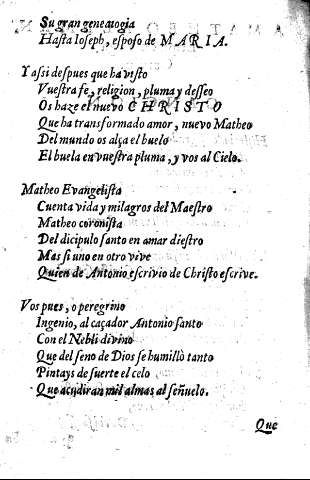 Su gran genealogia
Hasta Ioseph, esposo de MARIA.
Y assi despues que ha visto
Vuestra fe, religion, pluma y desseo
Os haze el nuevo CHRISTO
Que ha transformado amor, nuevo Matheo
Del mundo os alça el buelo
El buela en vuestra pluma, y vos al Cielo.
Matheo Evangelista
Cuenta vida y milagros del Maestro
Matheo coronista
Del dicipulo santo en amar diestro
Mas si uno en otro vive
Quien de Antonio escrivio de Christo escrive.
Vos pues, o peregrino
Ingenio, al caçador Antonio santo
Con el Nebli divino
Que del seno de Dios se humillò tanto
Pintays de suerte el celo
Que acudiran mil almas al señuelo.
Que